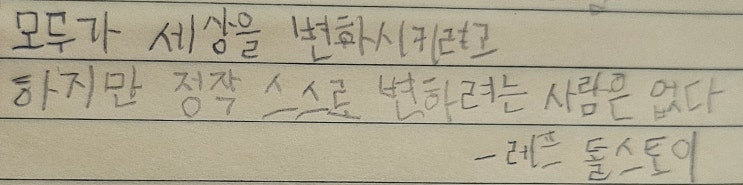 모두가 세상을 변화시키려고
하지만 정작 스스로 변하려는 사람은 없다
- 레프 톨스토이